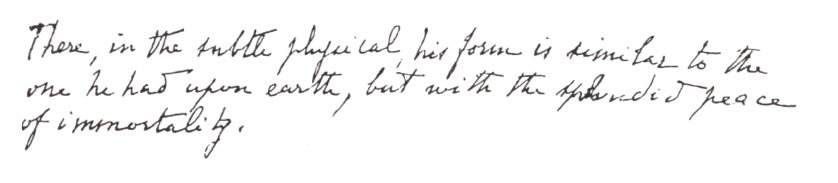 There, in the subtle physical, his form is similar to the
one he had upon earth, but with the splendid peace
of immortality.